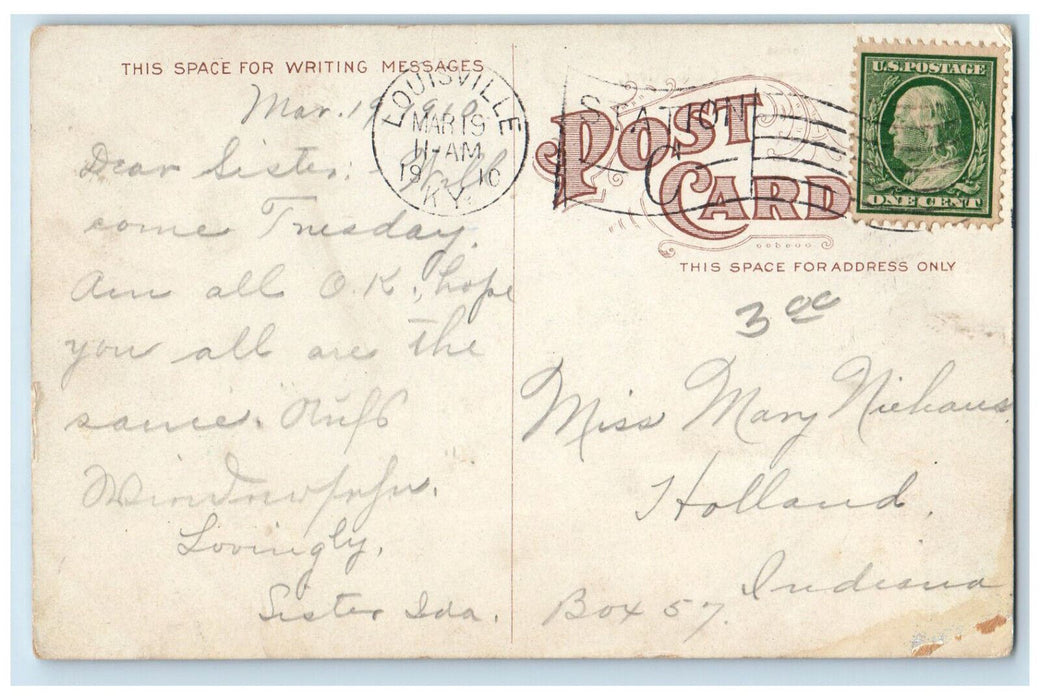 THIS SPACE FOR WRITING MESSAGES
Mar. 19, 1910
Dear Sister: - Will
come Tuesday.
Am all O.K., hope
you all are the
same. Aufs
Wiedersehn.
Lovingly,
Sister Ida.
LOUISVILLE
MAR 19
11-AM
1910
KY.
STATION
C
POST
CARD
U.S. POSTAGE
ONE CENT
THIS SPACE FOR ADDRESS ONLY
3 00
Miss Mary Niehaus
Holland,
Indiana
Box 57.